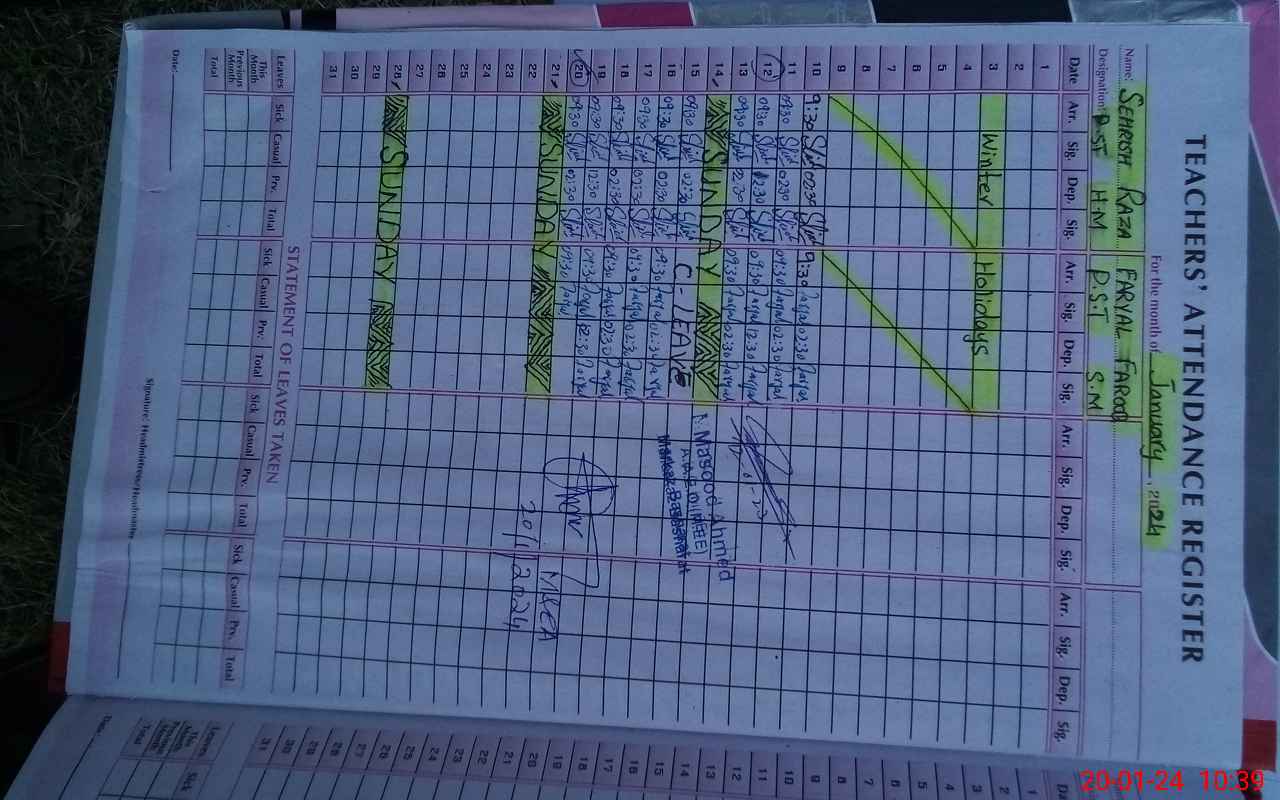 TEACHERS' ATTENDANCE REGISTER
For the month of January, 2024
Name: SEHRISH RAZA FARYAL FAROOQ
Designation: P.ST H.M P.S.T S.M
Date Arr. Sig. Dep. Sig. Arr. Sig. Dep. Sig. Arr. Sig. Dep. Sig. Arr. Sig. Dep. Sig.
1
2
3 Winter Holidays
4
5
6
7
8
9
10 9:30 02:30 9:30 Faryal 02:30 Faryal
11 09:30 02:30 09:30 Faryal 02:30 Faryal
12 09:30 12:30 09:30 Faryal 12:30 Faryal
13 09:30 02:30 09:30 Faryal 02:30 Faryal
14 SUNDAY
15 09:30 02:30 C-LEAVE
16 09:30 02:30 09:30 Faryal 02:30 Faryal
17 09:30 09:30 Faryal 02:30 Faryal
18 09:30 02:30 09:30 Faryal 02:30 Faryal
19 09:30 12:30 09:30 Faryal
20 09:30 02:30 09:30 Faryal 02:30 Faryal
21 SUNDAY
22
23
24
25
26
27
28 SUNDAY
29
30
31
Masood Ahmed
MKEA
20/1/2024
STATEMENT OF LEAVES TAKEN
Leaves Sick Casual Prv. Total Sick Casual Prv. Total Sick Casual Prv. Total Sick Casual Prv. Total
This Month
Previous Month
Total
Date:
Signature: Headmistress/Headmaster
20-01-24 10:39